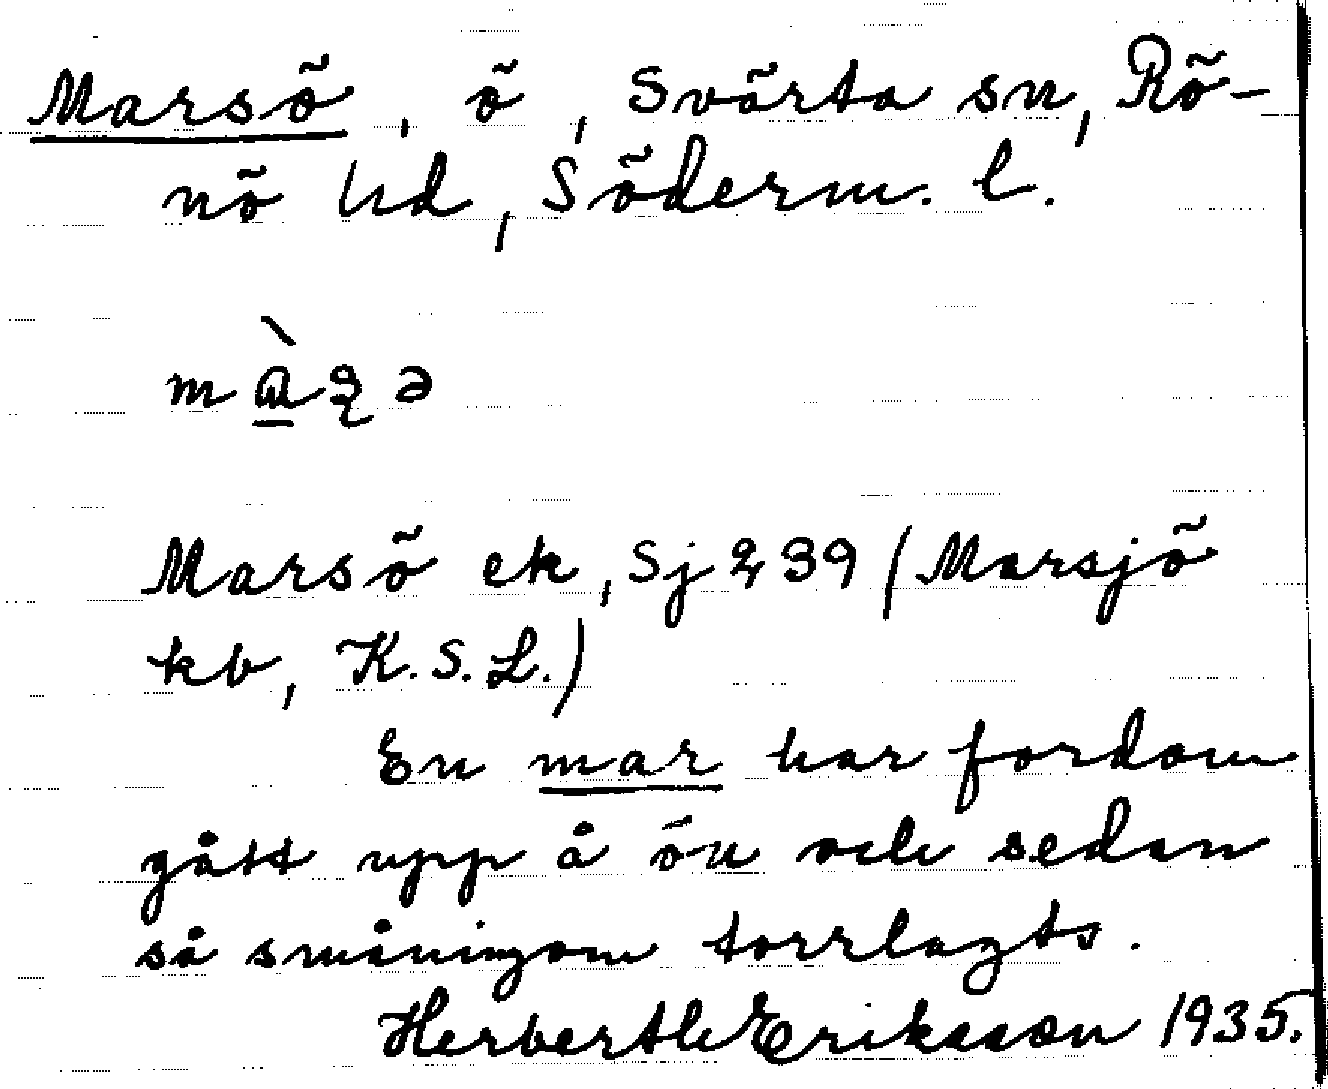 Marsö, ö, Svärta sn, Rö-
nö hd, Söderm. l.
Marsö ek, Sj 239 (Marsjö
kb, K.S.L.)
En mar har fordom
gått upp å ön och sedan
så småningom torrlagts.
Herbert Eriksson 1935.